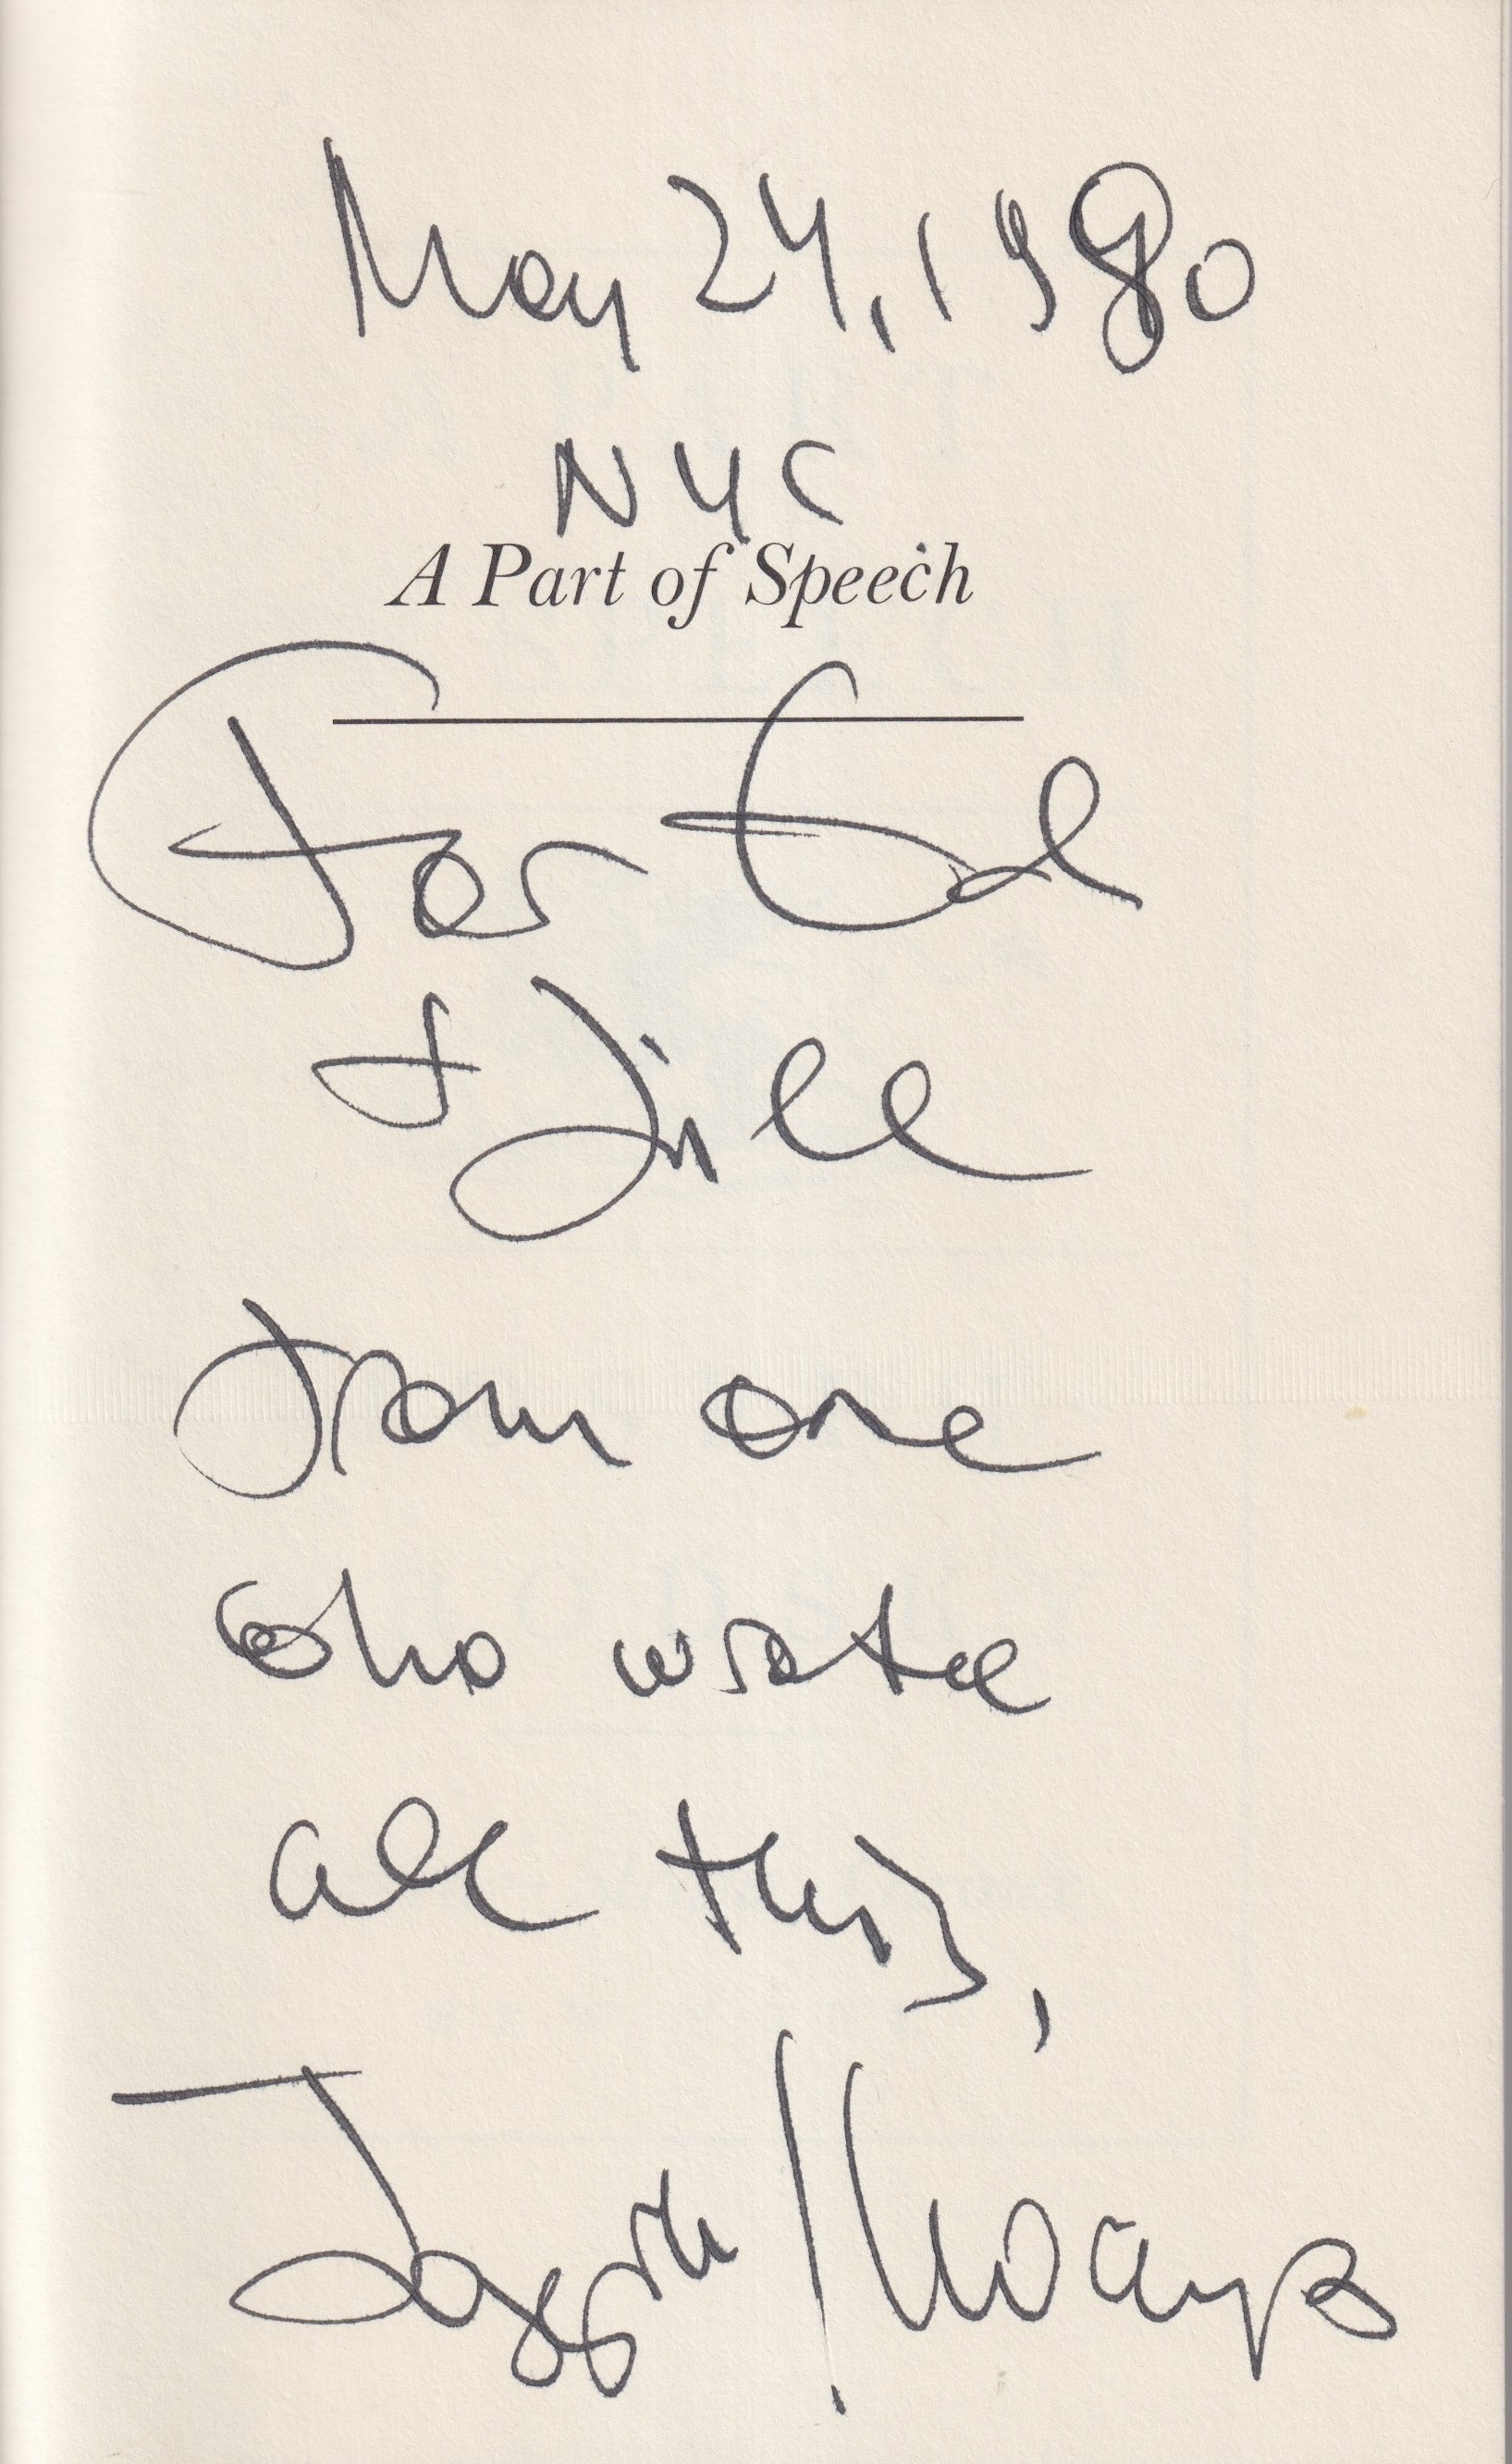 May 24, 1980
NYC
A Part of Speech
For Ed
+ Jill
from one
who wrote
all this,
Joseph